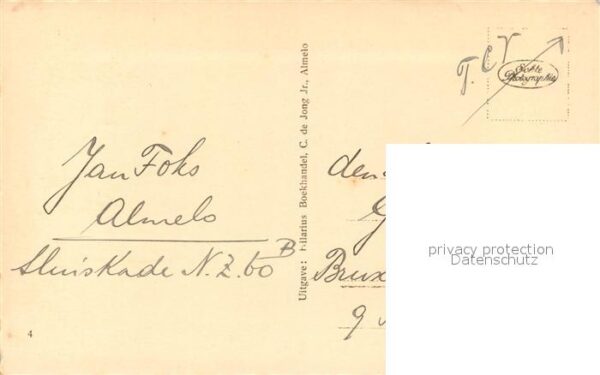 T. C. V.
Echte
Photographie
Jan Foks
Almelo
Sluiskade N.Z. 60 B
4
Uitgave: Hilarius Boekhandel, C. de Jong Jr., Almelo
den
G
Brux
9
privacy protection
Datenschutz